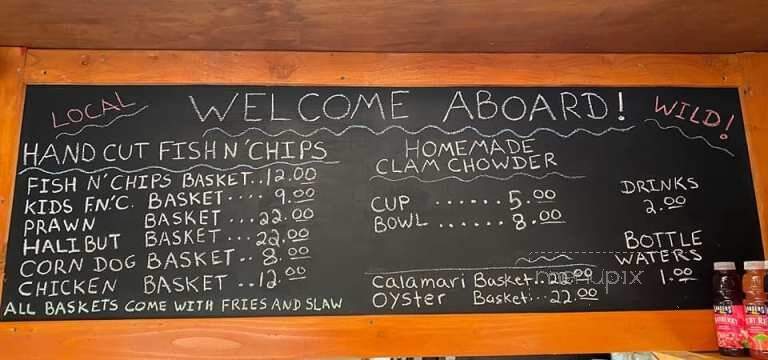 LOCAL
WELCOME ABOARD!
WILD!
HAND CUT FISH N' CHIPS
FISH N' CHIPS BASKET..12.00
KIDS F.N.'C. BASKET.... 9.00
PRAWN BASKET ...22.00
HALIBUT BASKET ...22.00
CORN DOG BASKET.. 8.00
CHICKEN BASKET ..12.00
ALL BASKETS COME WITH FRIES AND SLAW
HOMEMADE
CLAM CHOWDER
CUP ...... 5.00
BOWL ...... 8.00
Calamari Basket..22.00
OYSTER Basket...22.00
DRINKS
2.00
BOTTLE
WATERS
1.00
menupix